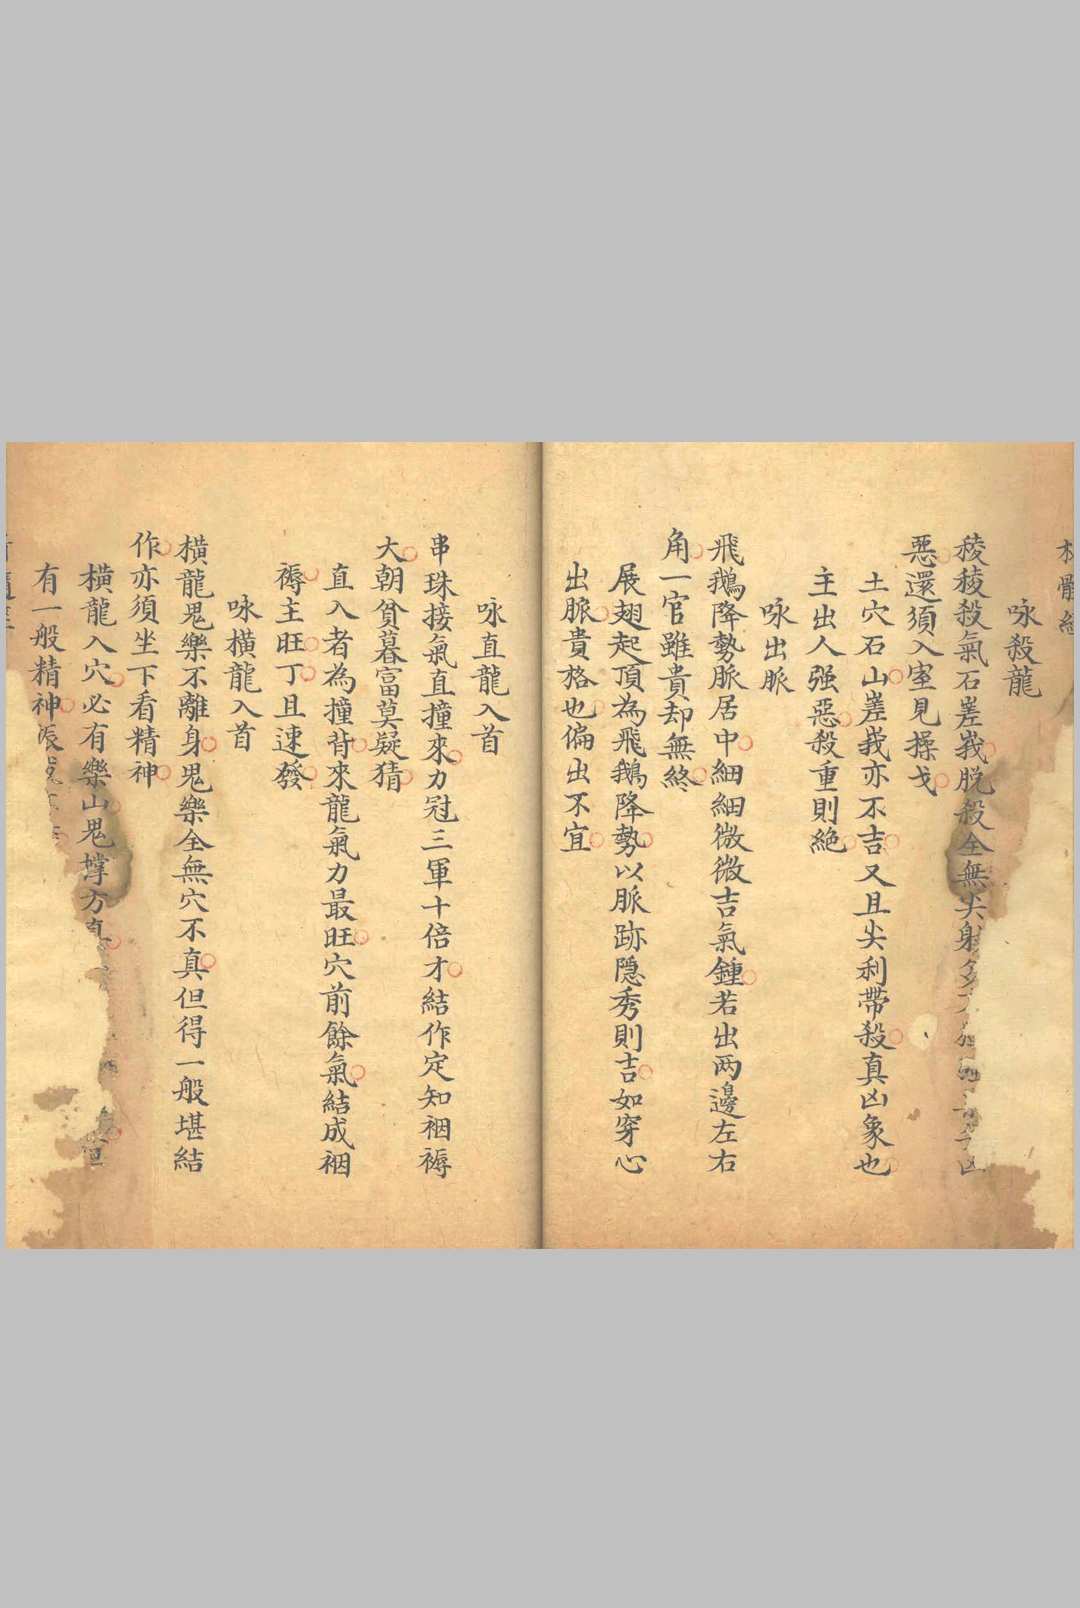 咏殺龍
稜稜殺氣石嵳峩脱殺全無尖射
惡還須入室見操戈
土穴石山嵳峩亦不吉又且尖利帶殺真凶象也
主出人强惡殺重則絶
咏出脈
飛鵝降勢脈居中細細微微吉氣鍾若出两邊左右
角一官雖貴却無終
展翅起頂為飛鵝降勢以脈跡隠秀則吉如穿心
出脈貴格也偏出不宜
咏直龍入首
串珠接氣直撞來力冠三軍十倍才結作定知裀褥
大朝貧暮富莫疑猜
直入者為撞背來龍氣力最旺穴前餘氣結成裀
褥主旺丁且速發
咏橫龍入首
橫龍鬼樂不離身鬼樂全無穴不真但得一般堪結
作亦須坐下看精神
橫龍入穴必有樂山鬼撑方真
有一般精神